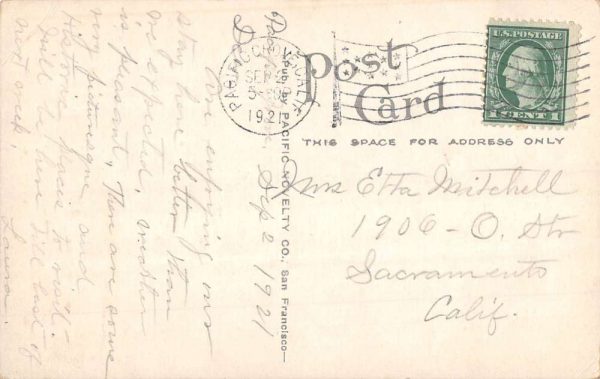 Pacific Grove,
Sep 2 1921
Dear
Am enjoying our
stay here better than
we expected, weather
is pleasant. There are some
very picturesque and
Historic places to visit.
Will be here till last of
next week
Laura.
PACIFIC GROVE CALIF.
SEP
5-PM
1921
Pub. by PACIFIC NOVELTY CO., San Francisco
Post
Card
THIS SPACE FOR ADDRESS ONLY
U.S. POSTAGE
1 CENT 1
Mrs Etta Mitchell
1906-O. Str
Sacramento
Calif.